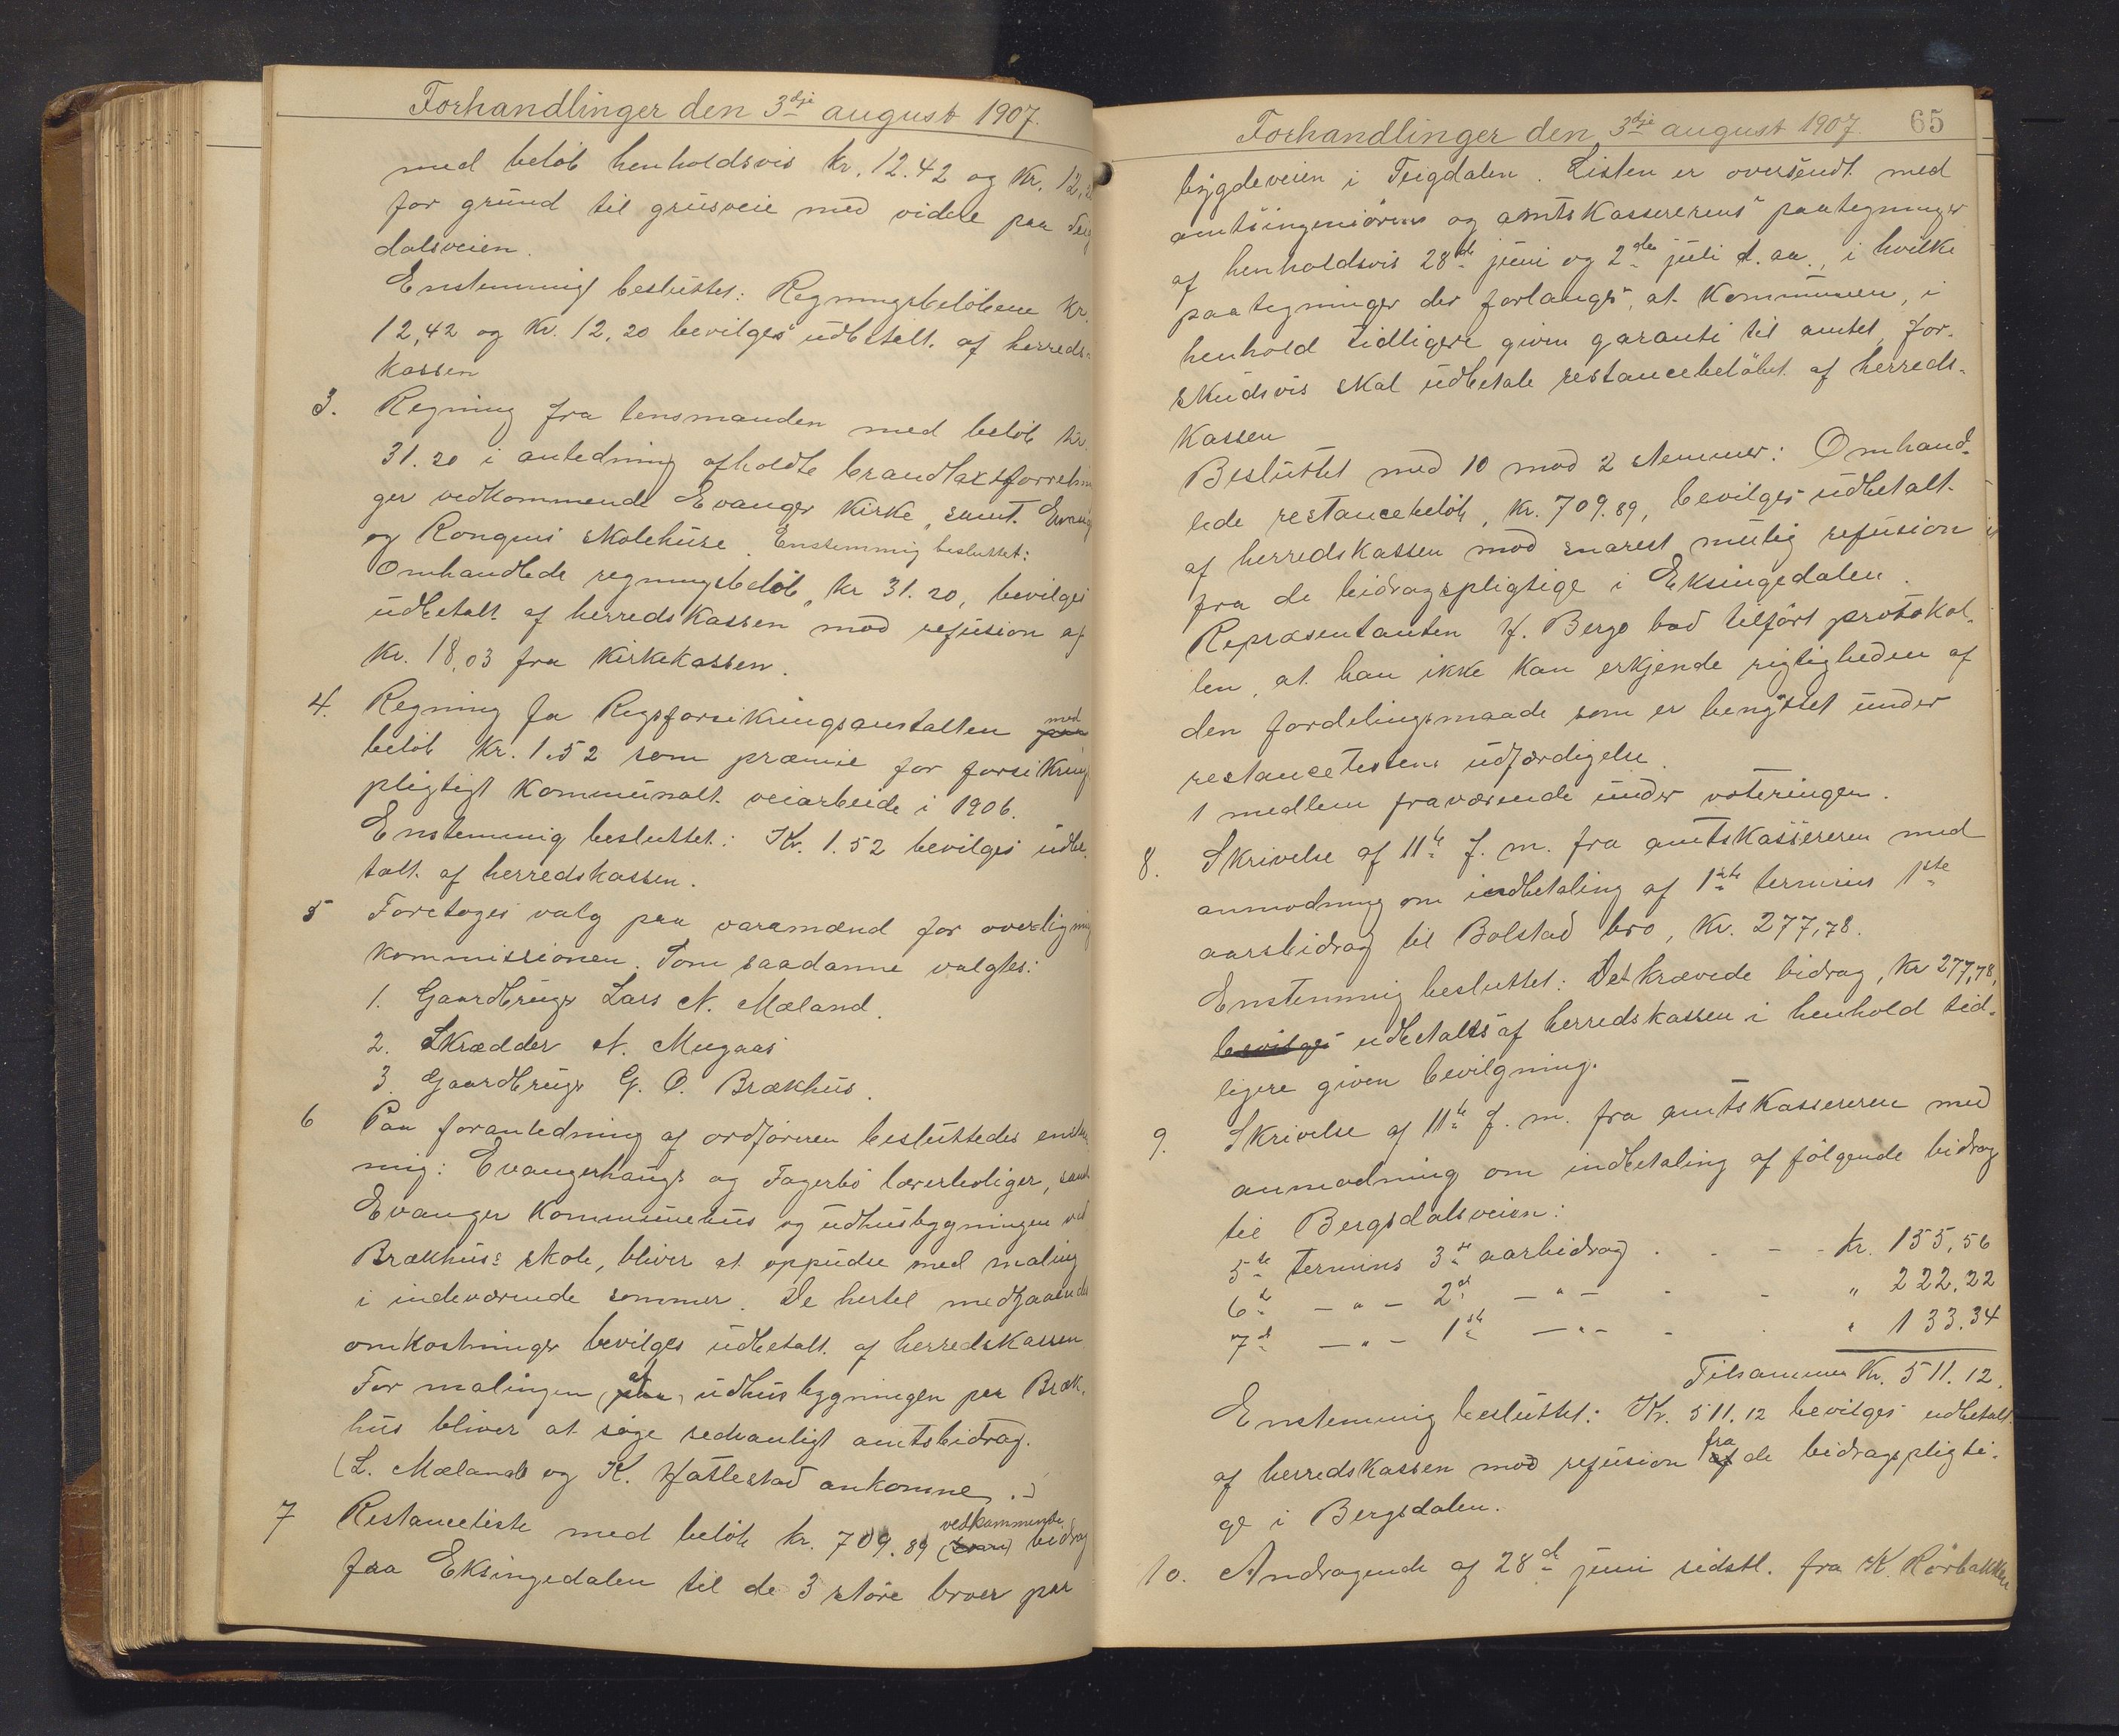 Forhandlinger den 3dje august 1907.
med beløb henholdsvis kr. 12.42 og Kr. 12,20
for grund til grusveie med videre paa Teig
dalsveien.
Enstemmigt besluttet: Regningsbeløbene Kr.
12,42 og Kr. 12,20 bevilges udbetalt af herreds-
kassen
3. Regning fra lensmanden med beløb kr.
31.20 i anledning afholdte brandtakstforretnin
ger vedkommende Evanger Kirke, samt Evanger
og Rongves skolehuse. Enstemmig besluttet:
Omhandlede regningsbeløb, kr 31.20, bevilges
udbetalt af herredskassen mod refusion af
Kr. 18,03 fra Kirkekassen.
4. Regning fa Rigsforsikringsanstalten med
beløb Kr. 1.52 som præmie for forsikrings
pligtigt Kommunalt veiarbeide i 1906.
Enstemmig besluttet: Kr. 1.52 bevilges udbe-
talt af herredskassen.
5 Foretoges valg paa varamænd for overligning
kommissionen. Som saadanne valgtes:
1. Gaardbruger Lars N. Mæland.
2. Skrædder N. Mugaas
3. Gaardbruger G. O. Brækhus.
6 Paa foranledning af ordføreren besluttedes enstem
mig: Evangerhaugs og Fagerbø lærerboliger, samt
Evanger Kommunehus og udhusbygningen ved
Brækhus: skole, bliver at oppudse med maling
i indeværende sommer. De hertil medgaaende
omkostninger bevilges udbetalt af herredskassen.
For malingen af udhusbygningen paa Bræk-
hus bliver at søge sedvanligt amtsbidrag.
(L. Mæland og K. Hatlestad ankomne.)
7 Restanceliste med beløb kr. 709.89 vedkommende bidrag
fra Eksingedalen til de 3 store broer paa
Forhandlinger den 3dje august 1907. 65
bygdeveien i Teigdalen. Listen er oversendt med
amtsingeniørens og amtskassererens paategninger
af henholdsvis 28de juni og 2den juli d. aa., i hvilke
paategninger der forlanges, at Kommunen, i
henhold tidligere given garanti til amtet, for-
skudsvis skal udbetale restancebeløbet af herreds-
kassen
Besluttet med 10 mod 2 stemmer: Omhand-
lede restancebeløb, Kr. 709.89, bevilges udbetalt
af herredskassen mod snarest mulig refusion
fra de bidragspligtige i Eksingedalen.
Repræsentanten H. Bergo bad tilført protokol-
len, at han ikke kan erkjende rigtigheden af
den fordelingsmaade som er benyttet under
restancelistens udfærdigelse.
1 medlem fraværende under voteringen.
8. Skrivelse af 11te f. m. fra amtskassereren med
anmodning om indbetaling af 1ste termins 1ste
aarsbidrag til Bolstad bro, Kr. 277,78.
Enstemmig besluttet: Det krævede bidrag, Kr 277,78,
bevilges udbetales af herredskassen i henhold tid-
ligere given bevilgning.
9. Skrivelse af 11te f. m. fra amtskassereren med
anmodning om indbetaling af følgende bidrag
til Bergsdalsveien:
5te termins 3die aarbidrag . - - - kr. 155,56
6te - " - 2det - " - - - " 222,22
7de - " - 1ste - " - - . " 133.34
Tilsammen Kr. 511.12.
Enstemmig besluttet: Kr. 511.12 bevilges udbetalt
af herredskassen mod refusion fra de bidragspligti-
ge i Bergsdalen.
10. Andragende af 28de juni sidstl. fra K. Rørbakken